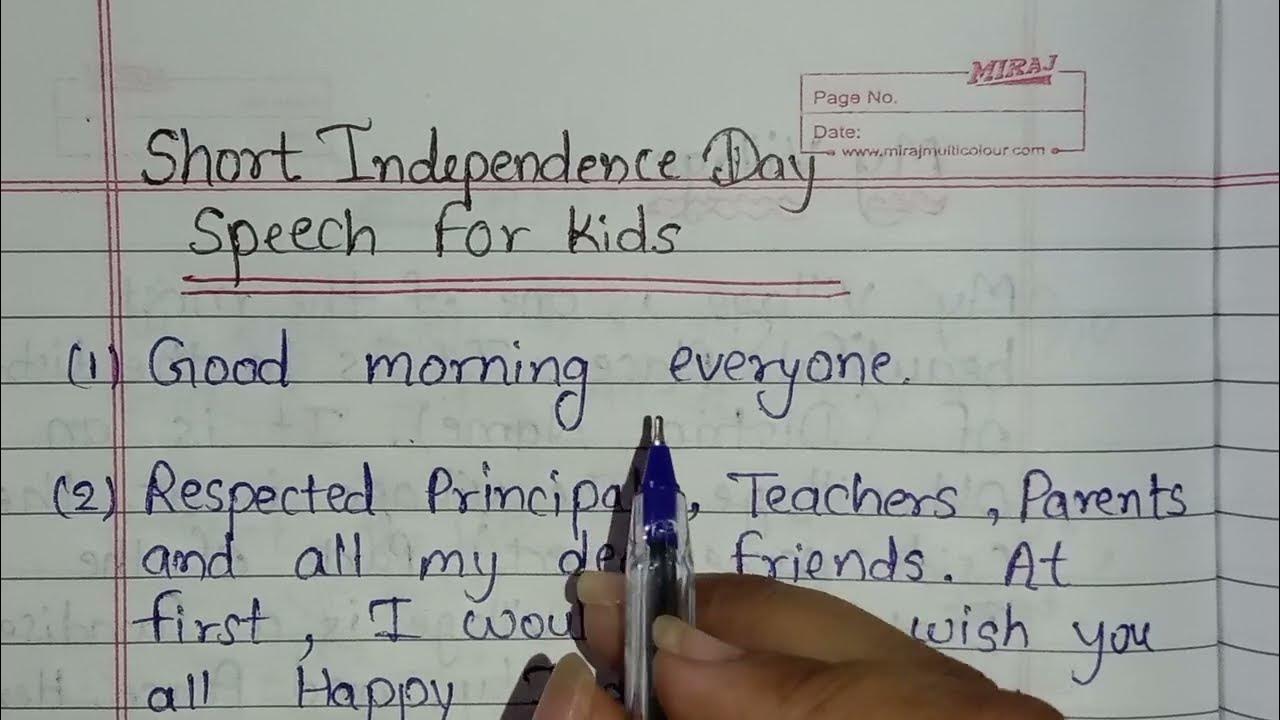 MIRAJ
Page No.
Date:
www.mirajmulticolour.com
Short Independence Day
Speech for Kids
(1) Good morning everyone.
(2) Respected Principal, Teachers, Parents
and all my friends. At
first, I wish you
all Happy